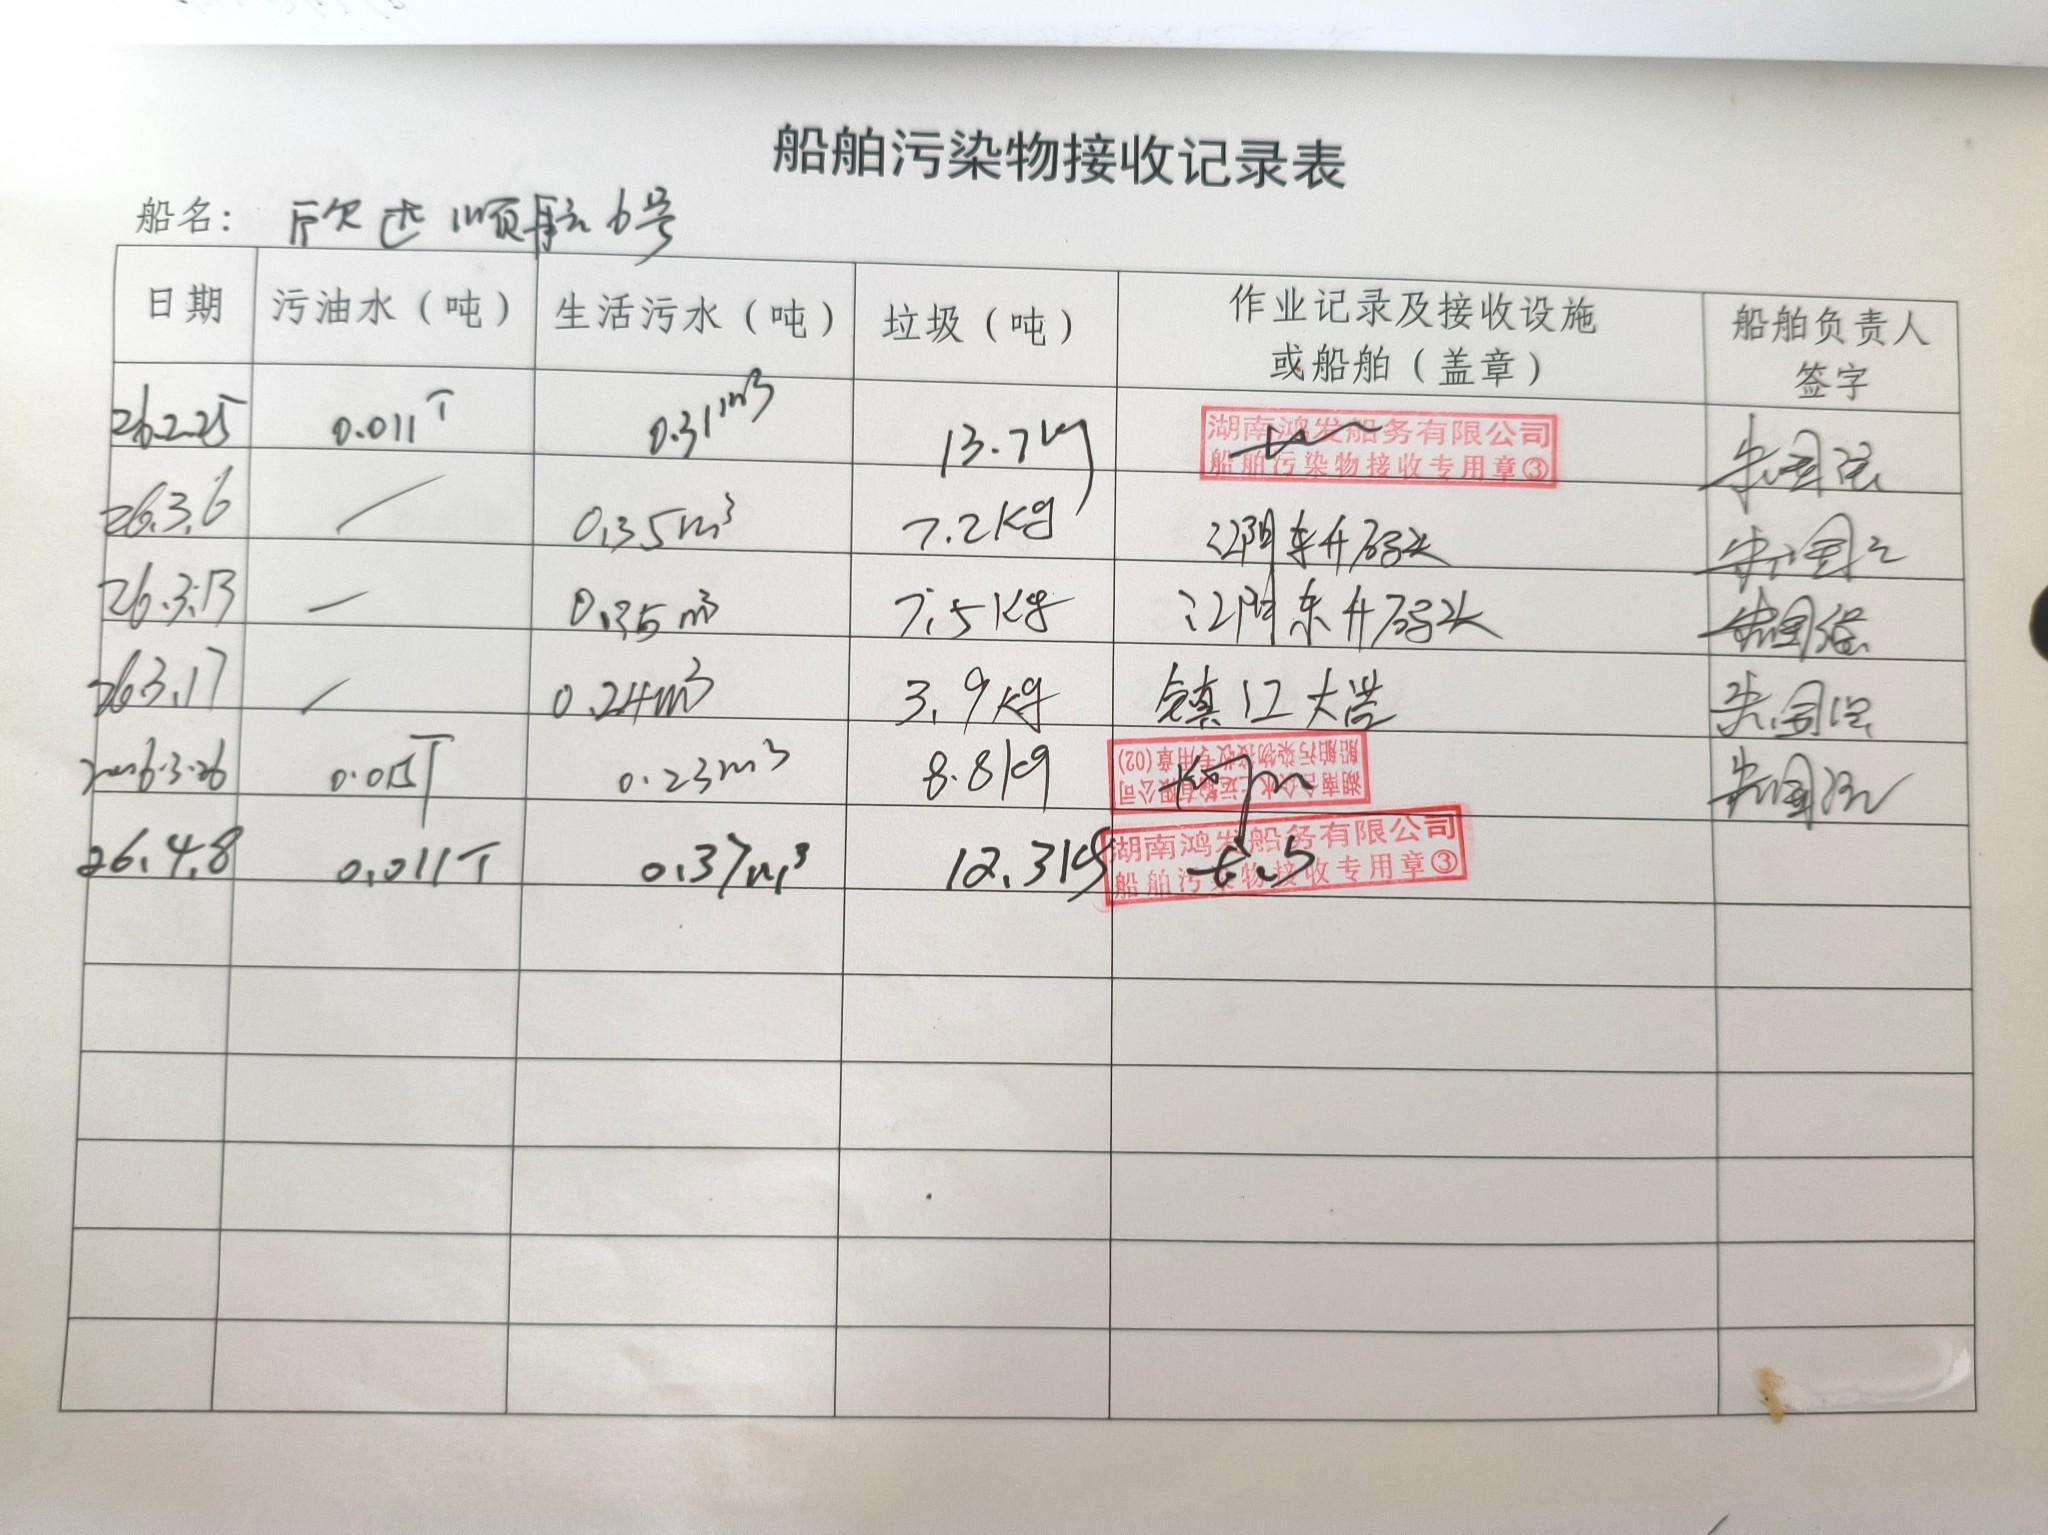 船舶污染物接收记录表
船名: 欣达顺航6号
日期 污油水（吨） 生活污水（吨） 垃圾（吨） 作业记录及接收设施或船舶（盖章） 船舶负责人签字
26.2.25 0.011T 0.31m³ 13.7kg 湖南鸿发船务有限公司 船舶污染物接收专用章③
26.3.6 / 0.35m³ 7.2kg 江阴东升码头
26.3.13 / 0.35m³ 7.5kg 江阴东升码头
26.3.17 / 0.24m³ 3.9kg 镇江大港
2026.3.26 0.23m³ 8.8kg 船舶污染物接收专用章(02)
26.4.8 0.011T 0.37m³ 12.3kg 湖南鸿发船务有限公司 船舶污染物接收专用章③